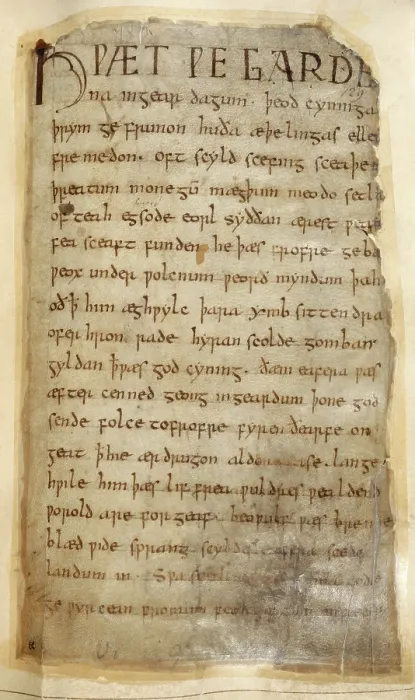 HǷÆT ǷE GARDE
na ingear dagum . þeod cyninga
þrym ge frunon huða æþelingas elle
fremedon . oft scyld scefing sceaþe
þreatum monegū mægþum meodo setla
of teah egsode eorl syððan ærest ƿear
fea sceaft funden he þæs frofre geba
ƿeox under ƿolcnum ƿeorð myndum þah
oð þ him æghƿylc þara ymb sittendra
ofer hron rade hyran scolde gomban
gyldan þ ƿæs god cyning . ðæm eafera ƿæs
æfter cenned geong ingeardum þone god
sende folce tofrofre fyren ðearfe on
geat þ hie ær drugon aldor ase . lange
hƿile him þæs lif frea ƿuldres ƿealdend
ƿorold are forgeaf . beoƿulf ƿæs breme
blæd ƿide sprang scyldes eafera scede
landum in . Sƿa sceal
ge ƿyrcean fromum feoh